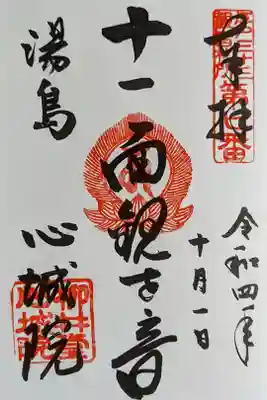 奉拝
令和四年
十月一日
十一面観世音
湯島
心城院